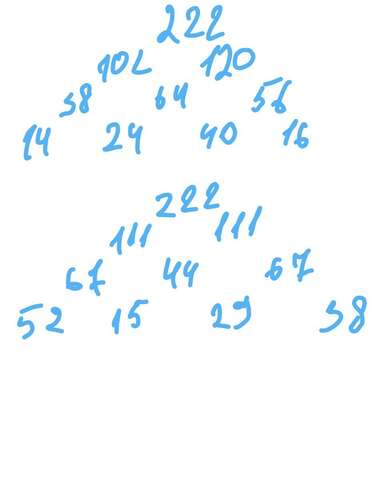 222
102 120
38 64 56
14 24 40 16
222
111 111
67 44 67
52 15 29 38